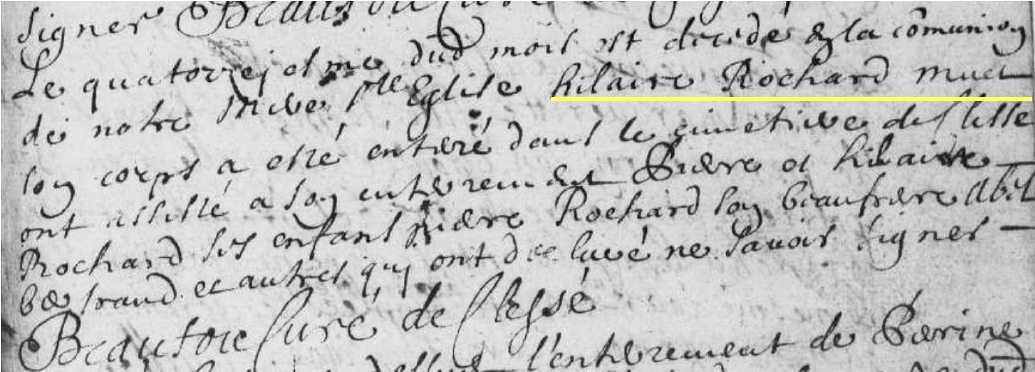 signer Beautoie Curé
Le quatorziesme dud mois est decedé en la comunion
de notre mere ste Eglise hilaire Rochard muet
son corps a esté enteré dans le cimetiere de Clessé
ont assisté a son enterement Pierre et hilaire
Rochard ses enfans pierre Rochard son beaufrere Abel
Bertraud et autres qui ont declaré ne savoir signer
Beautoie Curé de Clessé
l'enterement de Perine